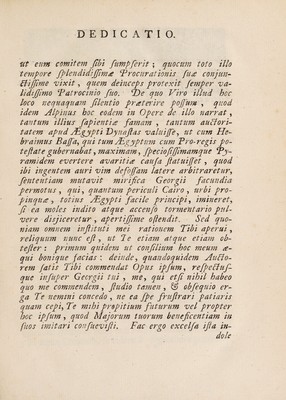 DEDICATIO.
ut eum comitem sibi sumpserit; quocum toto illo
tempore splendidissimæ Procurationis suæ conjun-
ctissime vixit, quem deinceps protexit semper va-
lidissimo Patrocinio suo. De quo Viro illud hoc
loco nequaquam silentio præterire possum, quod
idem Alpinus hoc eodem in Opere de illo narrat,
tantum illius sapientiæ famam, tantum auctori-
tatem apud Ægypti Dynastas valuisse, ut cum He-
braimus Bassa, qui tum Ægyptum cum Pro-regis po-
testate gubernabat, maximam, speciosissimamque Py-
ramidem evertere avaritiæ causa statuisset, quod
ibi ingentem auri vim defossam latere arbitraretur,
sententiam mutavit mirifica Georgii facundia
permotus, qui, quantum periculi Cairo, urbi pro-
pinquæ, totius Ægypti facile principi, imineret,
si ea moles indito atque accenso tormentario pul-
vere disjiceretur, apertissime ostendit. Sed quo-
niam omnem instituti mei rationem Tibi aperui,
reliquum nunc est, ut Te etiam atque etiam ob-
tester: primum quidem ut consilium hoc meum æ-
qui bonique facias: deinde, quandoquidem Aucto-
rem satis Tibi commendat Opus ipsum, respectus-
que insuper Georgii tui, me, qui etsi nihil habeo
quo me commendem, studio tamen, & obsequio er-
ga Te nemini concedo, ne ea spe frustrari patiaris
quam cepi, Te mihi propitium futurum vel propter
hoc ipsum, quod Majorum tuorum beneficentiam in
suos imitari consuevisti. Fac ergo excelsa ista in-
dole